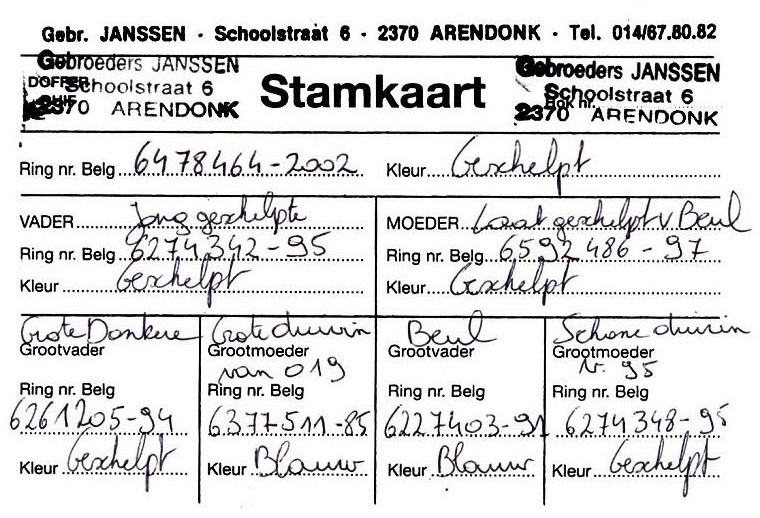 Gebr. JANSSEN · Schoolstraat 6 · 2370 ARENDONK · Tel. 014/67.80.82
Gebroeders JANSSEN
DOFFER Schoolstraat 6
DUIF 2370 ARENDONK
Stamkaart
Gebroeders JANSSEN
Schoolstraat 6
Hok nr.
2370 ARENDONK
Ring nr. Belg 6478464-2002 Kleur Geschelpt
VADER Jong geschelpte MOEDER Laat geschelpt v Beul
Ring nr. Belg 6274342-95 Ring nr. Belg 6592486-97
Kleur Geschelpt Kleur Geschelpt
Grote Donkere Grote duivin Beul Schone duivin
Grootvader Grootmoeder Grootvader Grootmoeder
van 019 v. 95
Ring nr. Belg Ring nr. Belg Ring nr. Belg Ring nr. Belg
6261205-94 6377511-85 6227403-91 6274348-95
Kleur Geschelpt Kleur Blauw Kleur Blauw Kleur Geschelpt